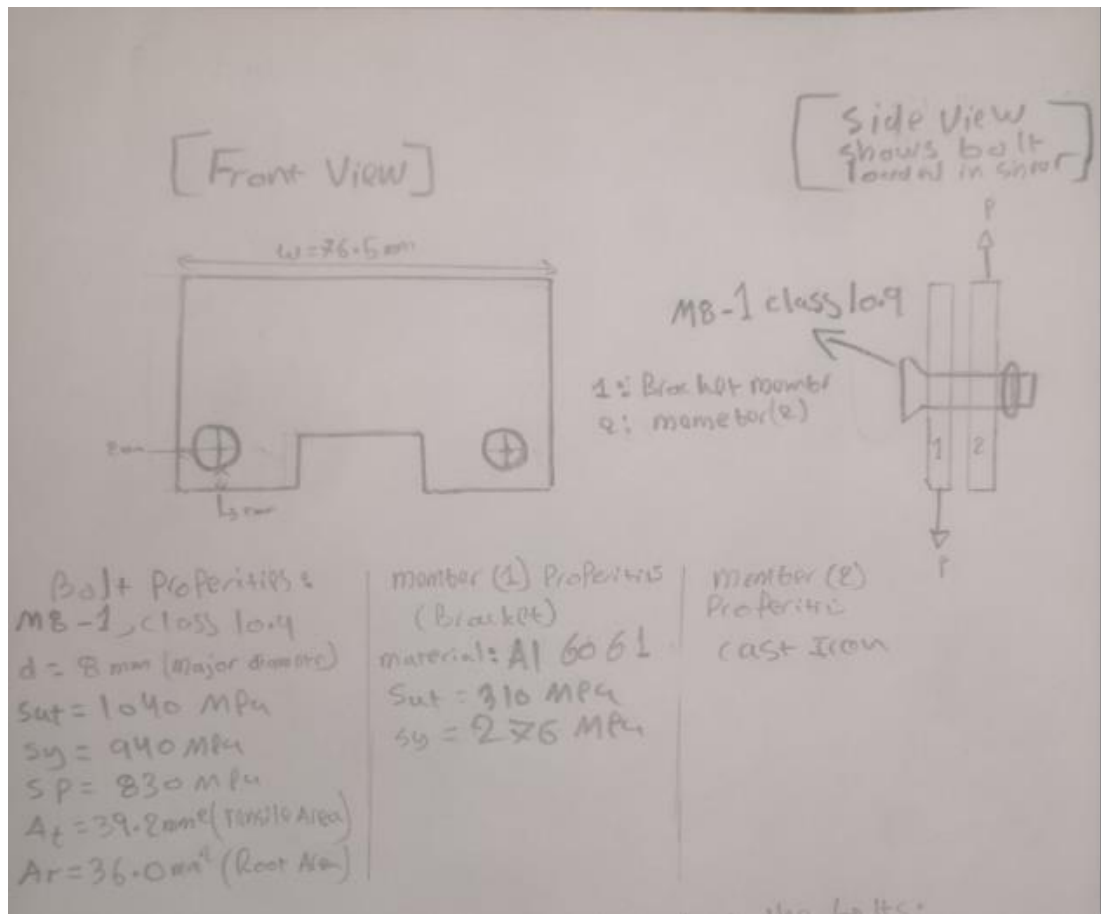 [Front View]
[Side View
shows bolt
loaded in shear]
w=76.5 mm
P
M8-1 class 10.9
1: Bracket
2: (2)
1
2
P
Bolt Properities:
M8-1, class 10.9
d = 8 mm (major
Sut = 1040 MPa
Sy = 940 MPa
SP = 830 MPa
At = 39.2 mm² (Tensile Area)
Ar = 36.0 mm² (Root Area)
member (1) Properitis
(Bracket)
material: Al 6061
Sut = 310 MPa
Sy = 276 MPa
member (2)
cast Iron
the bolts: